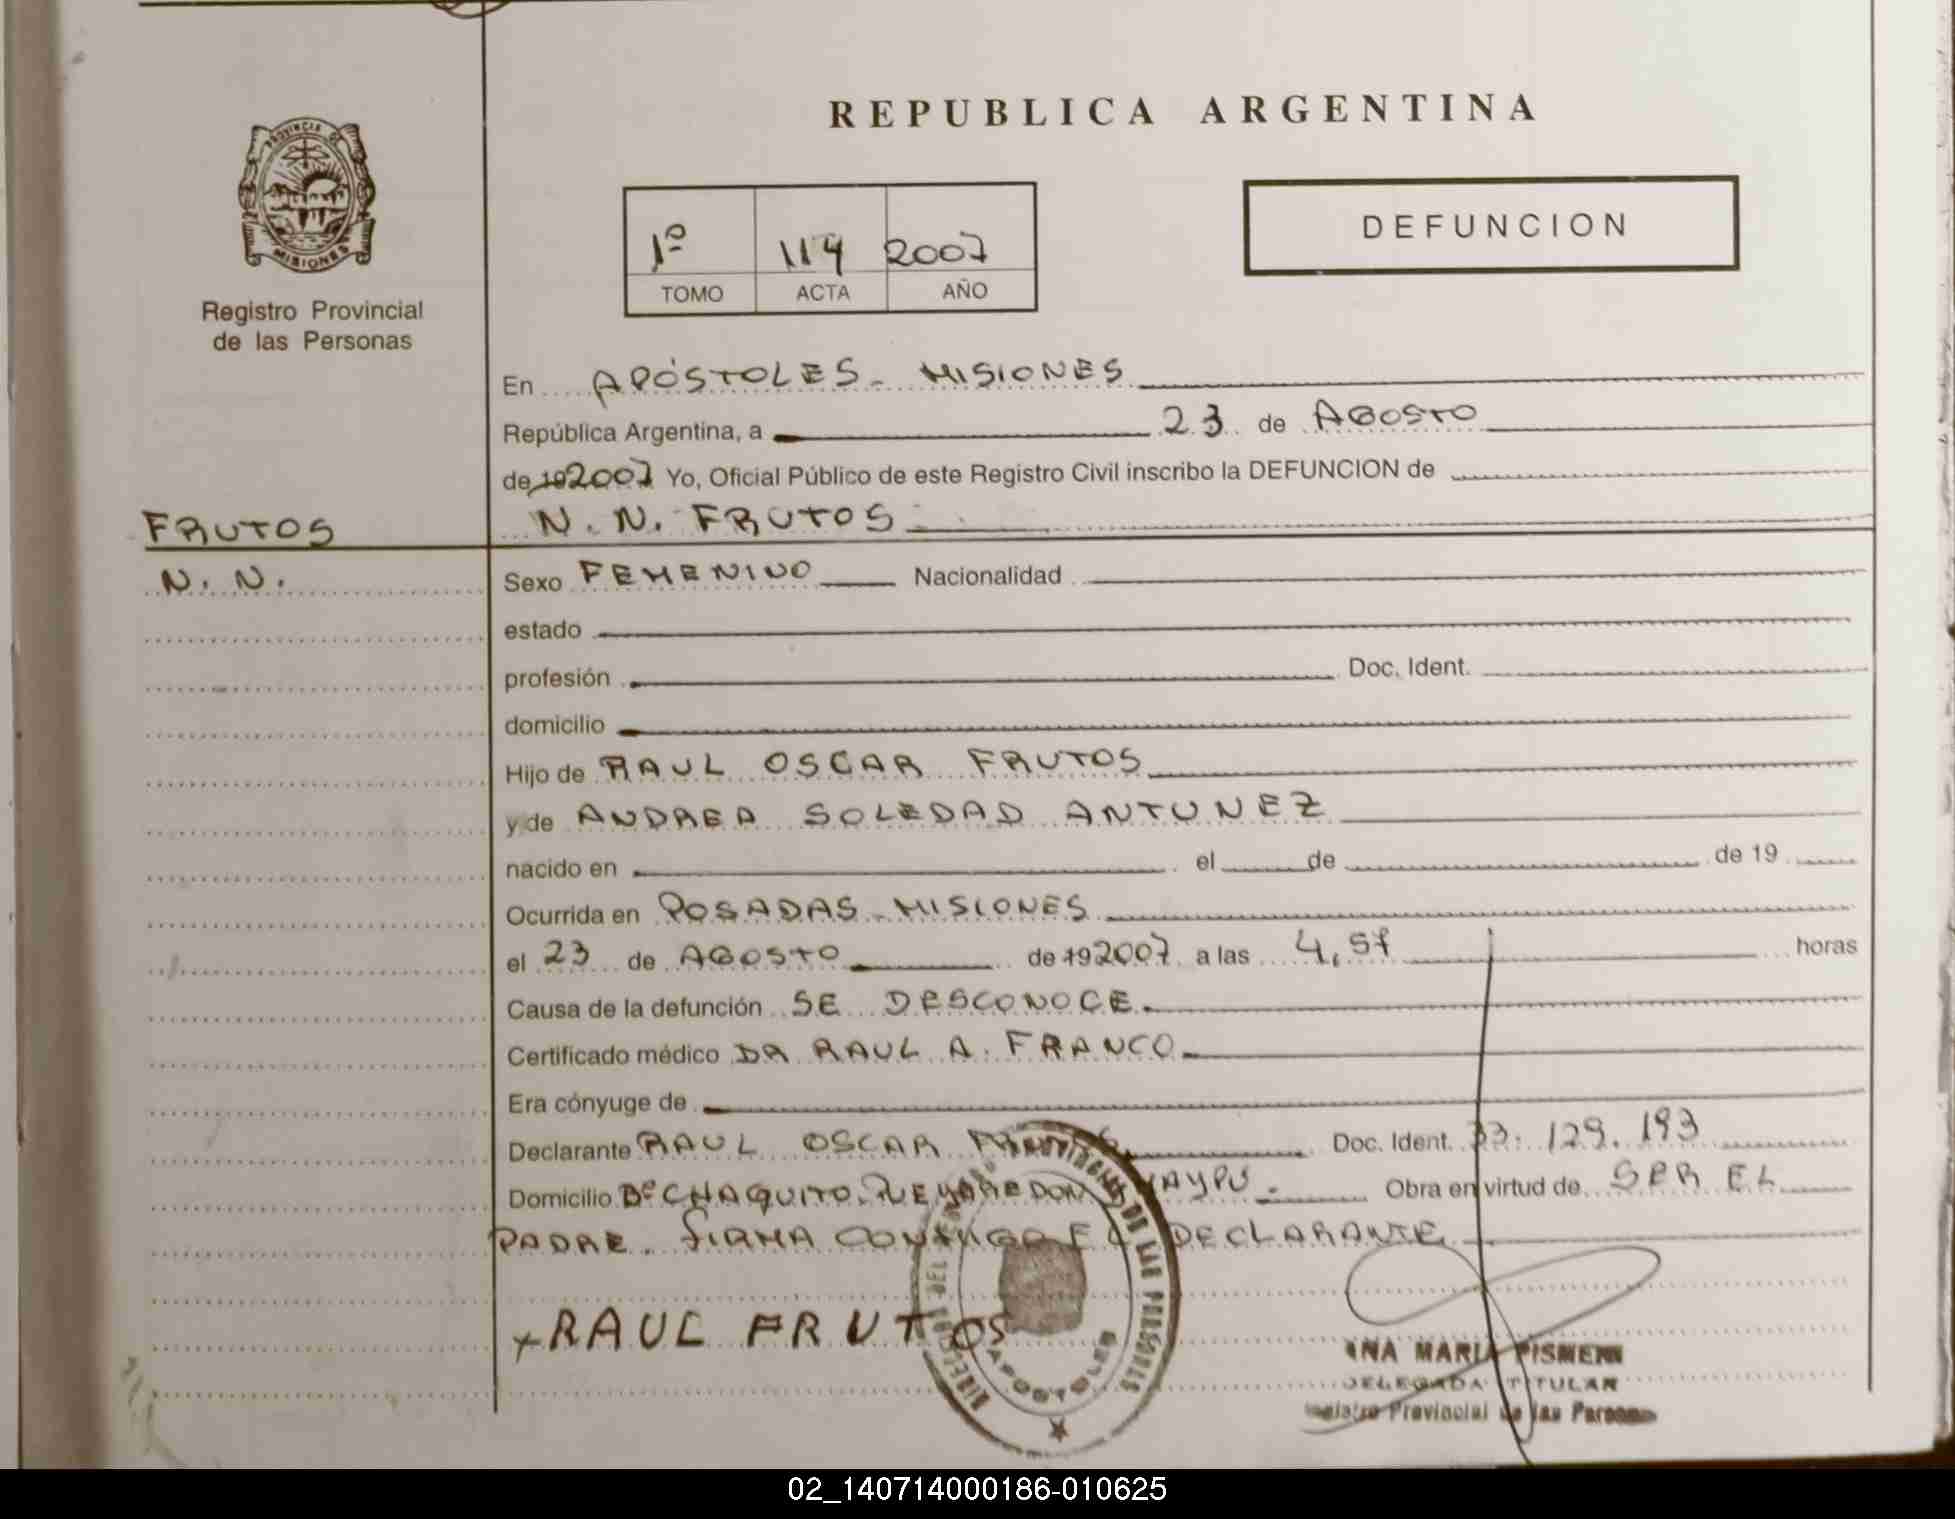 REPUBLICA ARGENTINA
PROVINCIA DE
MISIONES
Registro Provincial
de las Personas
1º 114 2007
TOMO ACTA AÑO
DEFUNCION
En APÓSTOLES - MISIONES
República Argentina, a 23 de AGOSTO
de 19 2007 Yo, Oficial Público de este Registro Civil inscribo la DEFUNCION de
FRUTOS
N. N. FRUTOS
N. N.
Sexo FEMENINO Nacionalidad
estado
profesión Doc. Ident.
domicilio
Hijo de RAUL OSCAR FRUTOS
y de ANDREA SOLEDAD ANTUNEZ
nacido en el de de 19
Ocurrida en POSADAS - MISIONES
el 23 de AGOSTO de 19 2007 a las 4,57 horas
Causa de la defunción SE DESCONOCE
Certificado médico DR RAUL A. FRANCO
Era cónyuge de
Declarante RAUL OSCAR FRUTOS Doc. Ident. 33.129.193
Domicilio Bº CHAQUITO. PUEYRREDON Y MAYPU. Obra en virtud de SER EL
PADRE. FIRMA CONMIGO EL DECLARANTE
+RAUL FRUTOS
DE LAS PERSONAS
APOSTOLES
ANA MARIA
DELEGADA TITULAR
Registro Provincial de las Personas
02_140714000186-010625